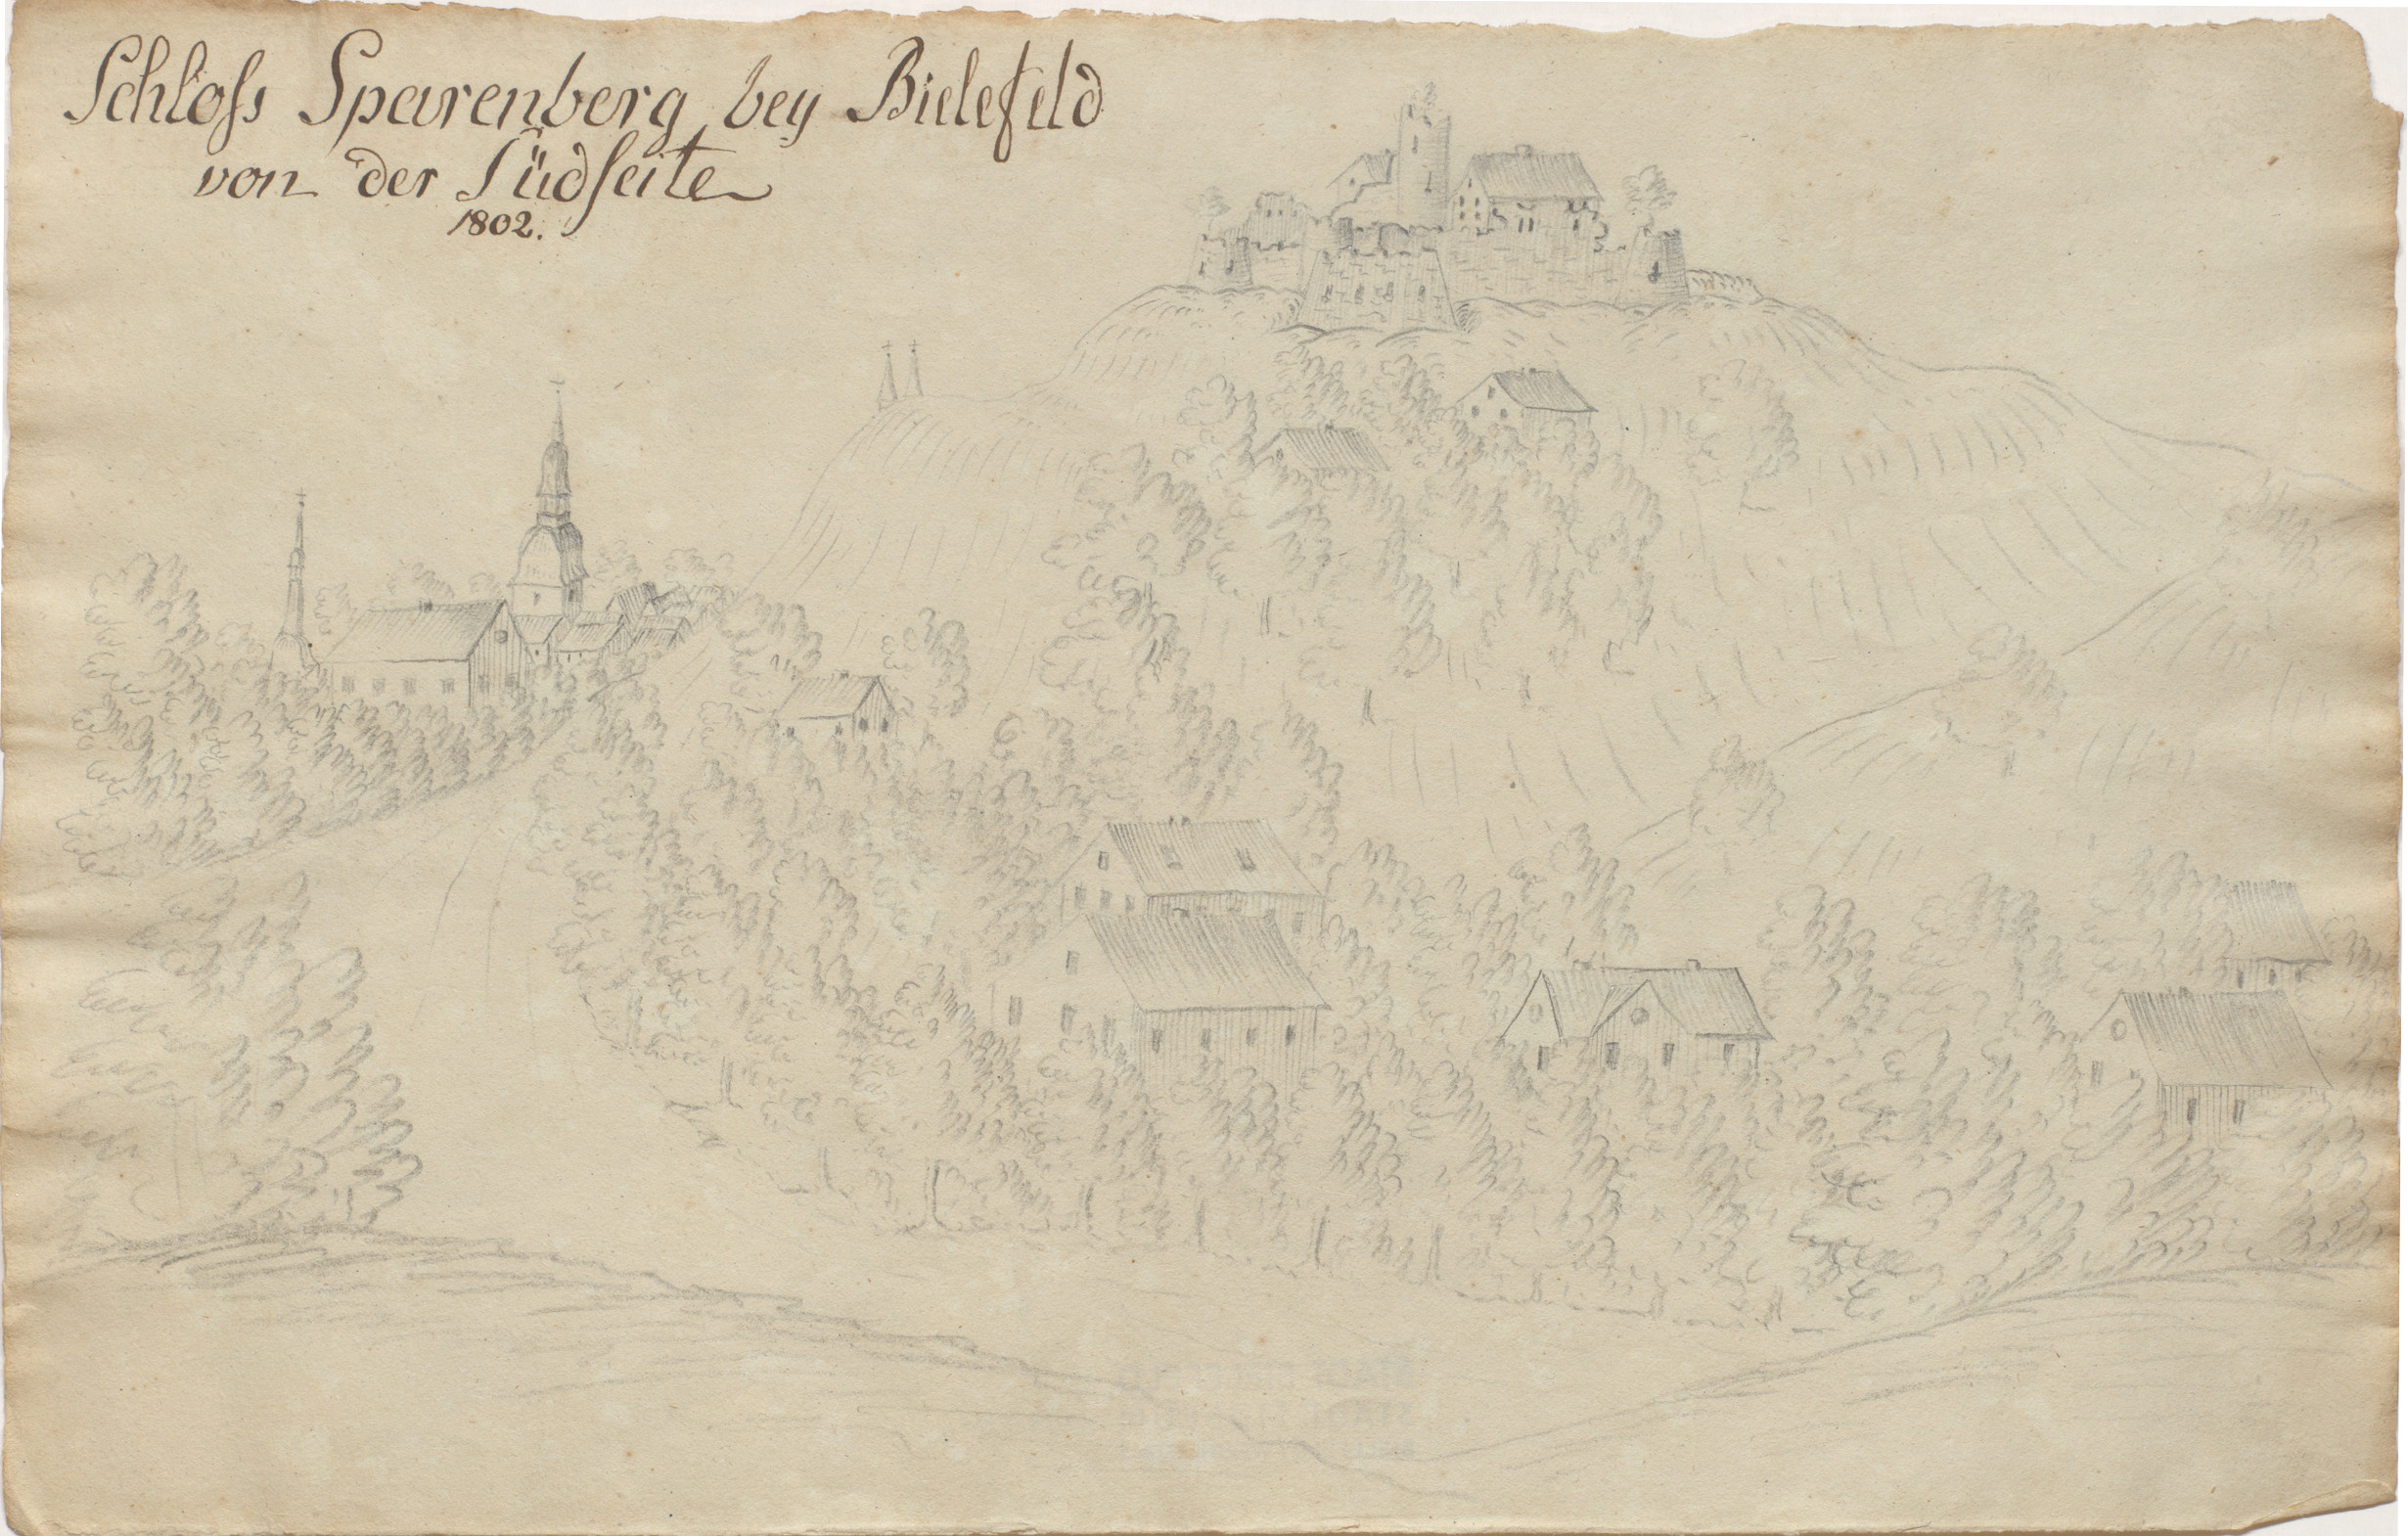 Schloſs Sparenberg bey Bielefeld
von der Südſeite
1802.